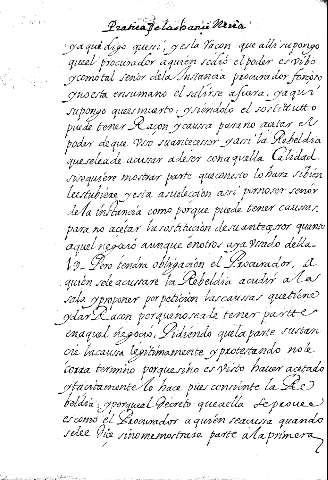 Pratica de la Chancilleria
y aqui digo que si, y es la racon que alli supongo
que el procurador a quien se dio el poder es vibo
y como tal señor de la instancia procurador forçoso
y no esta en su mano el salirse a fuera, y aqui
supongo que es muerto, y siendolo el sostitutto
puede tener Racon y causa para no acetar el
poder de que uso su antecessor y assi la Rebeldia
que se le a de acusar a de ser con aquella calidad
si se quiere mostrar parte que con esto lo hara si bien
le estubiere y es a su eleccion assi por no ser señor
de la instancia como porque puede tener causas
para no acetar la sostitucion de su antecesor quando
aquel negocio aunque en otros aya usado della
Pero tendra obligacion el Procurador, a
quien se le acusare la Rebeldia acudir a la
sala y proponer por peticion las causas que tiene
y dar Racon porque no sale tener partte
en aquel negocio, Pidiendo que la parte sustan
cie la causa legitimamente y protestando no le
corra termino porque sino es visto haver acetado
y tacitamente lo hace pues consiente la Re
beldia, y porque al Decreto que a ella se provee
es como el Procurador a quien se acusa quando
se lee Dice sino me mostraro parte a la primera